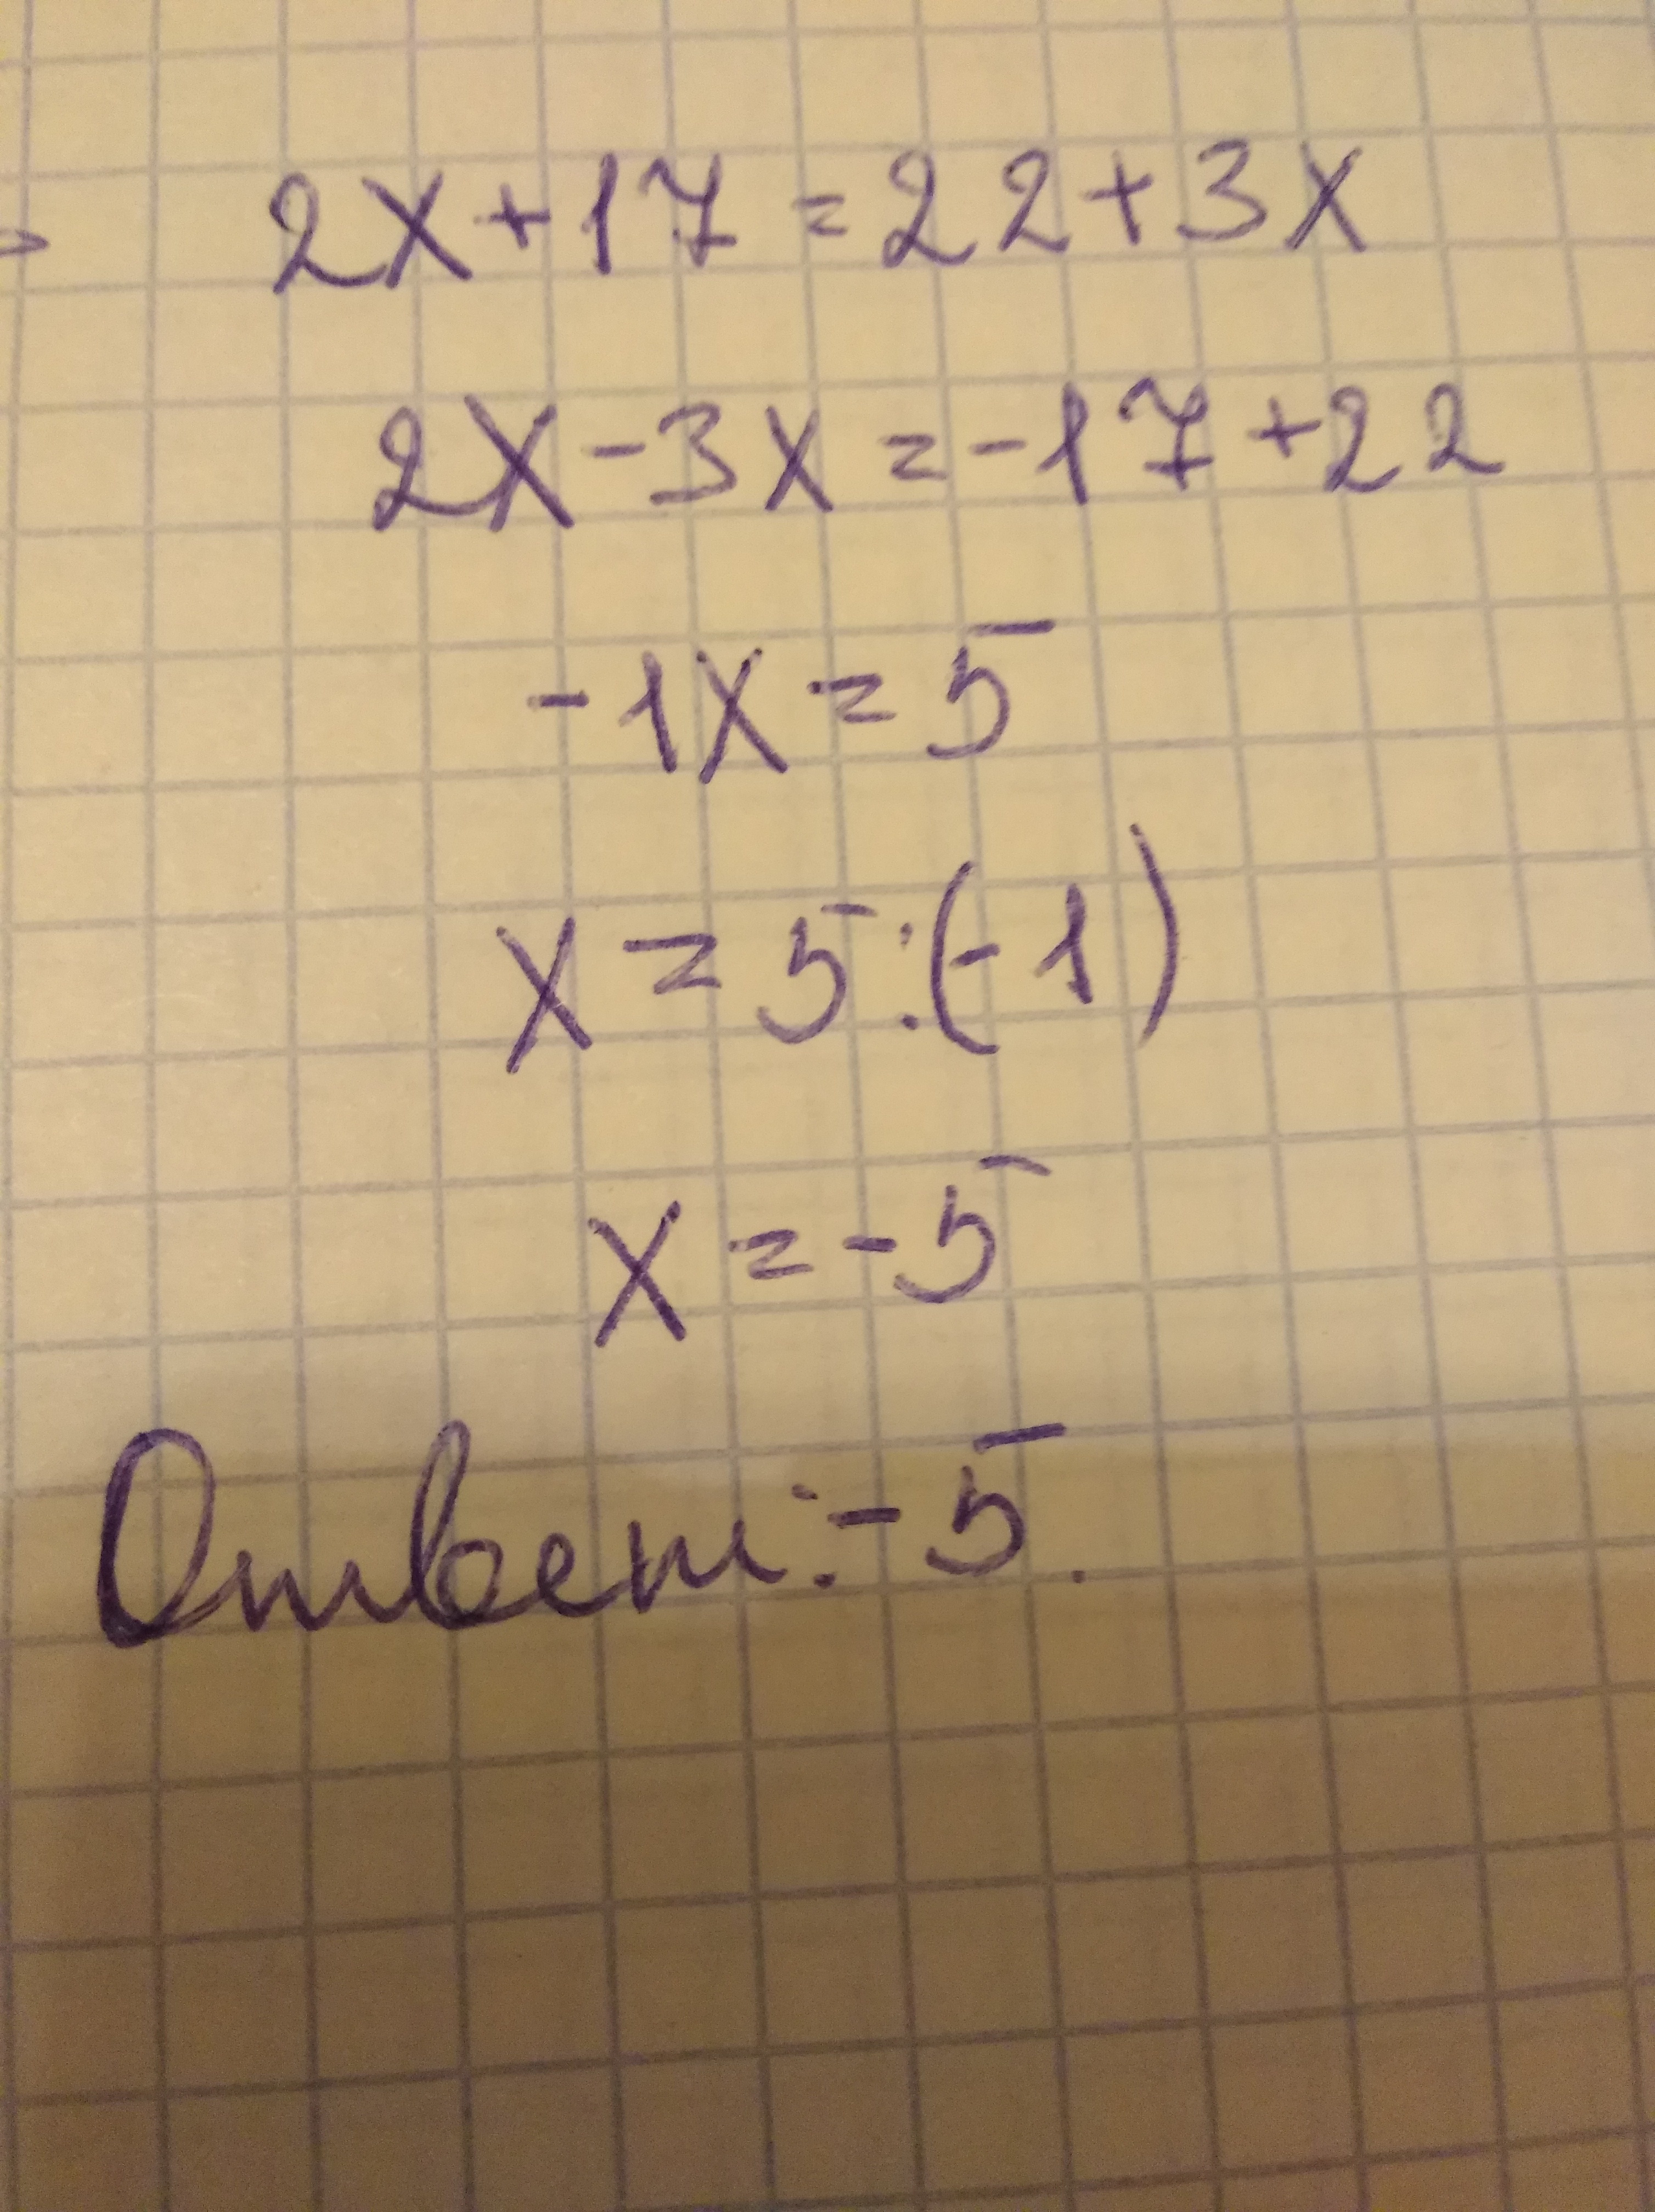 2x+17=22+3x
2x-3x=-17+22
-1x=5
x=5:(-1)
x=-5
Ответ:-5.